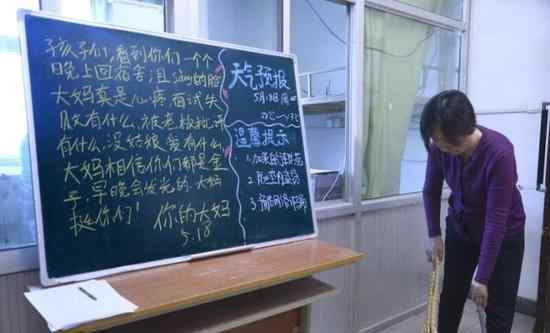 孩子们，看到你们一个个
晚上回宿舍沮sang的脸
大妈真是心疼 面试失
败有什么，被老板批评
有什么，没姑娘爱有什么
大妈相信你们都是金
子，早晚会发光的，大妈
挺你们！
你的大妈
5.18
天气预报
5月18日 周一
温馨提示
1.
2.
3.